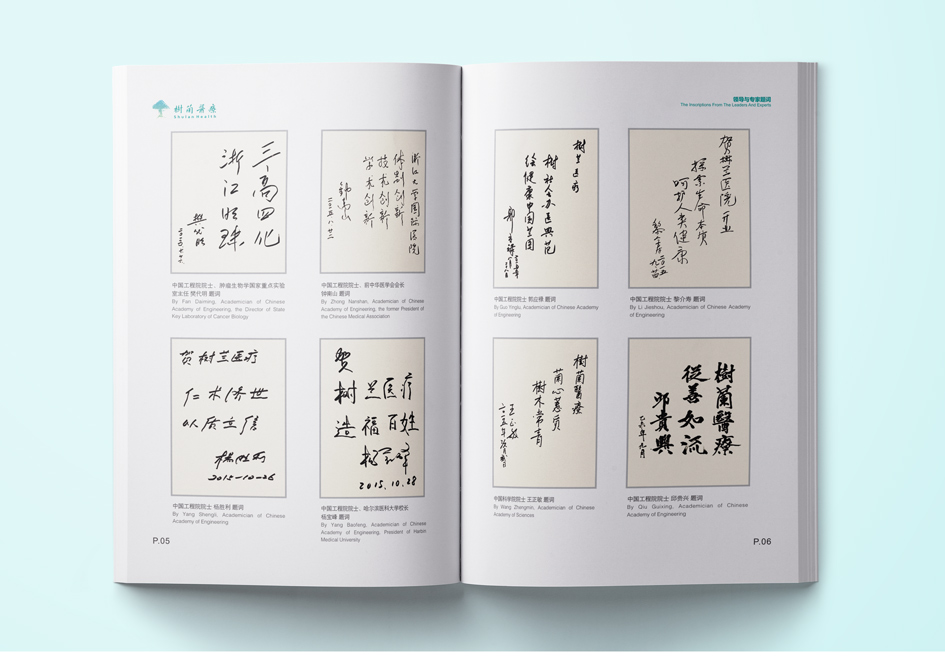 樹蘭醫療
Shulan Health
三高四化
浙江明珠
樊代明
中国工程院院士、肿瘤生物学国家重点实验
室主任 樊代明 题词
By Fan Daiming, Academician of Chinese
Academy of Engineering, the Director of State
Key Laboratory of Cancer Biology
浙江大学国际医院
体制创新
技术创新
学术创新
钟南山
二〇一五.八.二二
中国工程院院士、前中华医学会会长
钟南山 题词
By Zhong Nanshan, Academician of Chinese
Academy of Engineering, the former President of
the Chinese Medical Association
贺树兰医疗
仁术济世
以质立信
杨胜利
2015-10-26
中国工程院院士 杨胜利 题词
By Yang Shengli, Academician of Chinese
Academy of Engineering
贺
树兰医疗
造福百姓
杨宝峰
2015.10.28
中国工程院院士、哈尔滨医科大学校长
杨宝峰 题词
By Yang Baofeng, Academician of Chinese
Academy of Engineering, President of Harbin
Medical University
P.05
领导与专家题词
The Inscriptions From The Leaders And Experts
树兰医疗
树社会办医典范
绘健康中国兰图
郭应禄
中国工程院院士 郭应禄 题词
By Guo Yinglu, Academician of Chinese Academy
of Engineering
贺树兰医院开业
探索生命本质
呵护人类健康
黎介寿
中国工程院院士 黎介寿 题词
By Li Jieshou, Academician of Chinese Academy
of Engineering
樹蘭醫療
蘭心蕙质
樹木常青
王正敏
中国科学院院士 王正敏 题词
By Wang Zhengmin, Academician of Chinese
Academy of Sciences
樹蘭醫療
從善如流
邱貴興
中国工程院院士 邱贵兴 题词
By Qiu Guixing, Academician of Chinese
Academy of Engineering
P.06